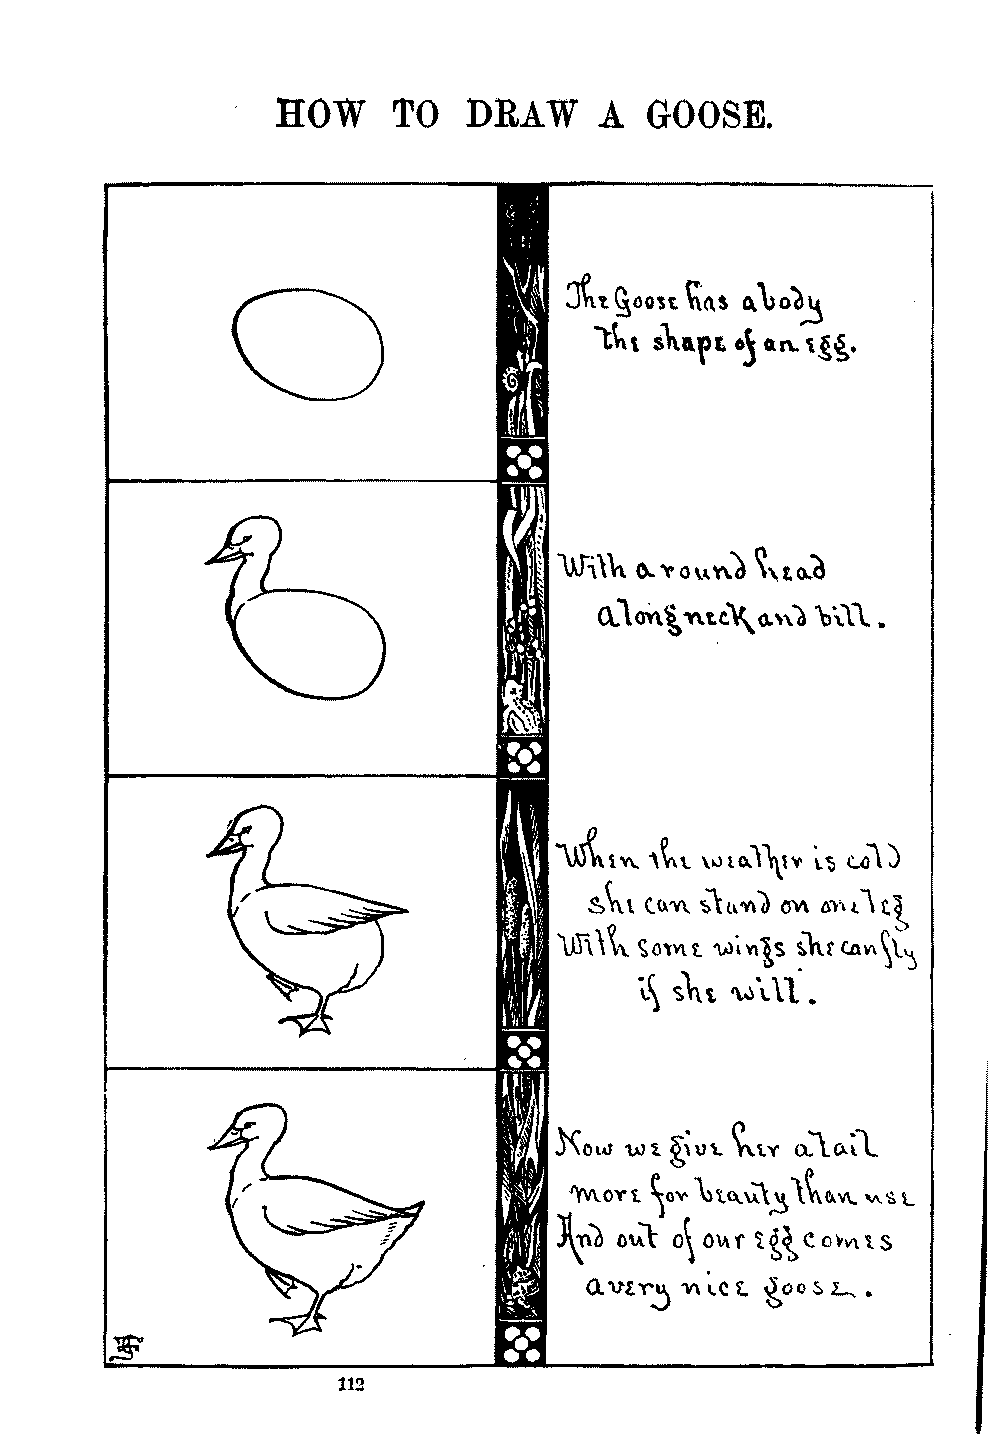 HOW TO DRAW A GOOSE.
The Goose has a body
the shape of an egg.
With a round head
a long neck and bill.
When the weather is cold
she can stand on one leg
With some wings she can fly
if she will.
Now we give her a tail
more for beauty than use
And out of our egg comes
a very nice goose.
112